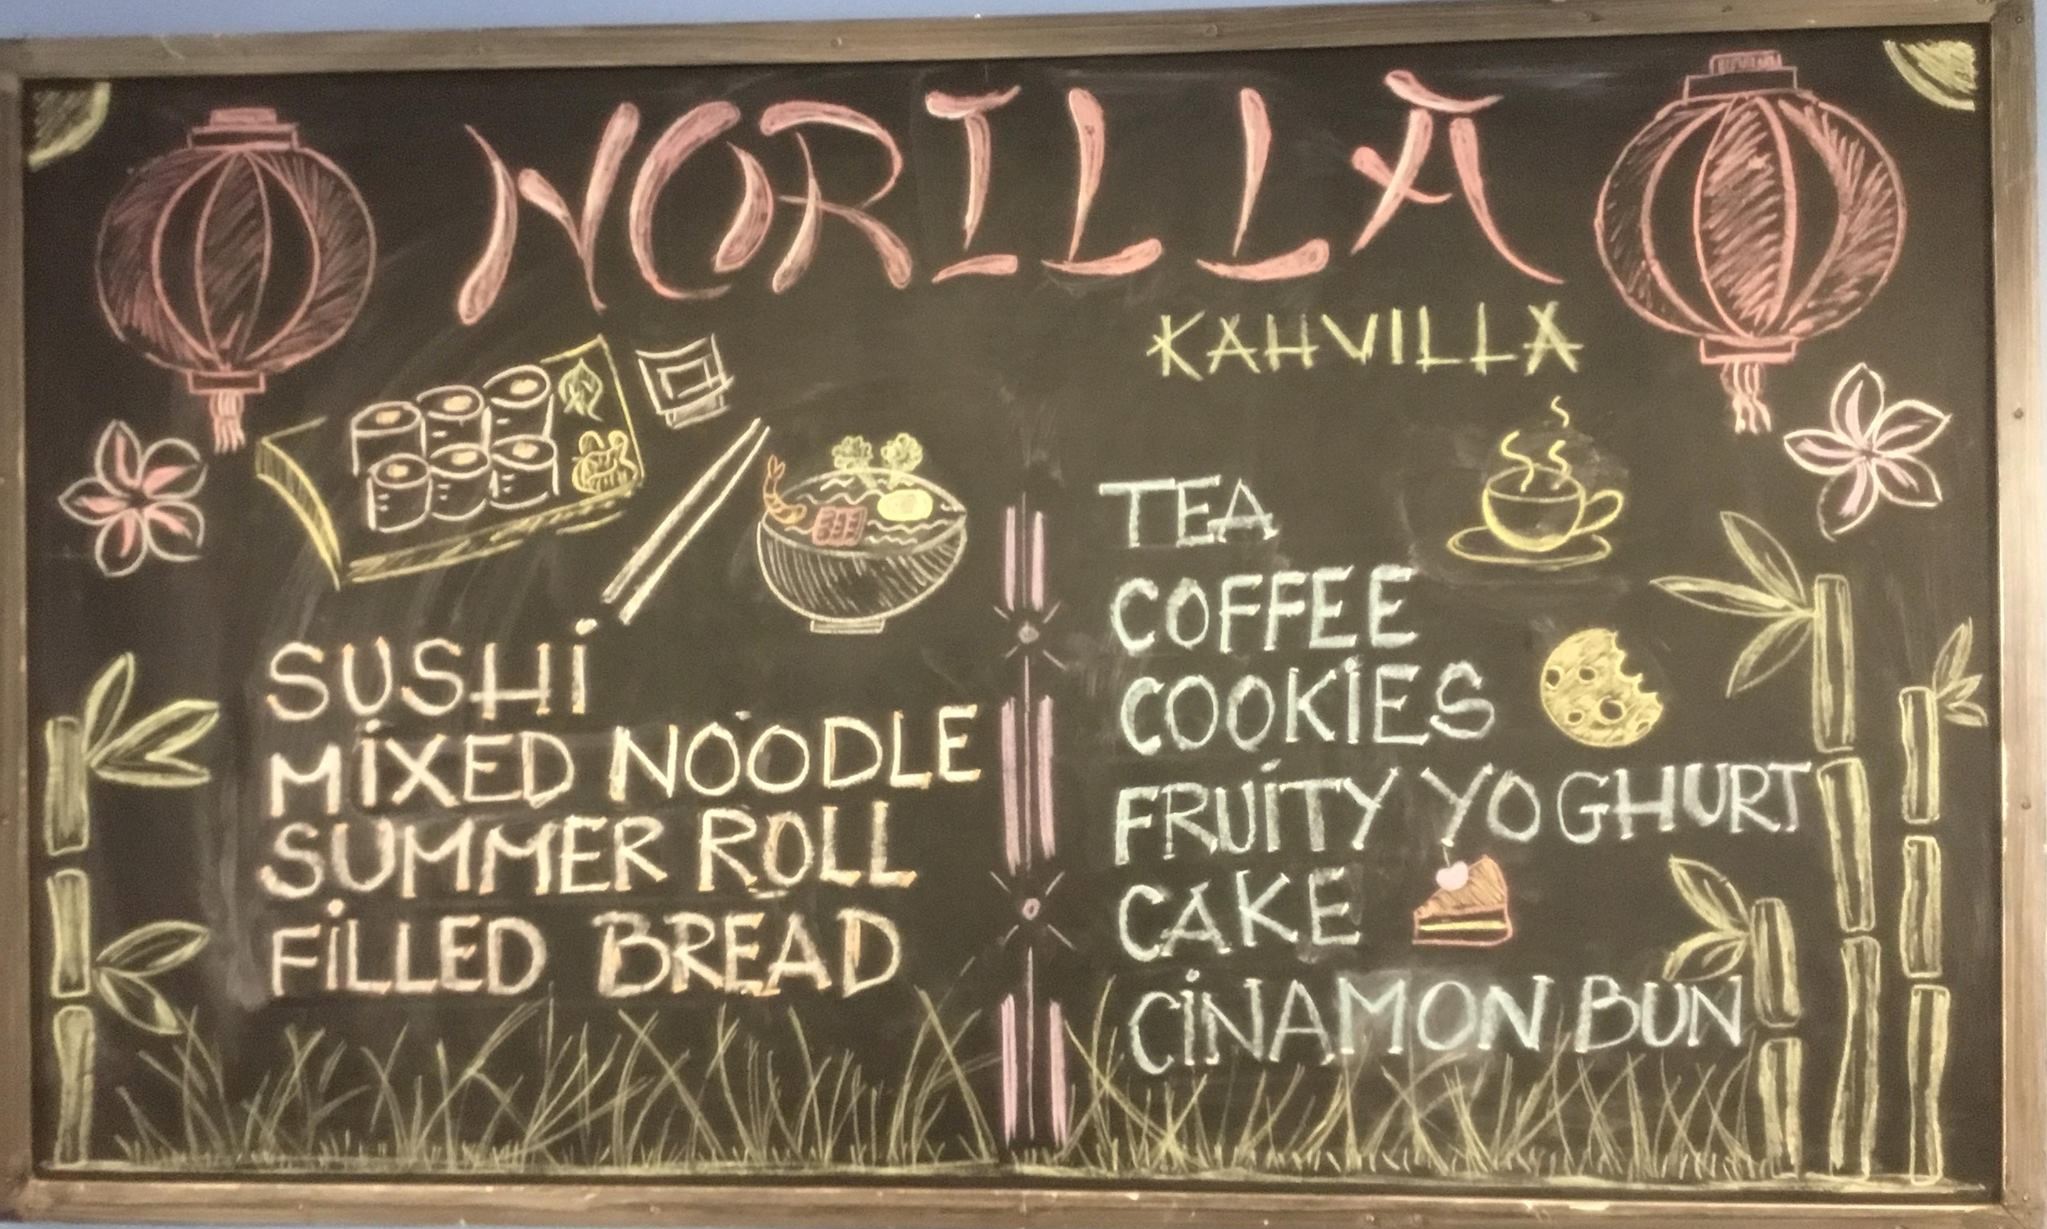 NORILLA
KAHVILLA
SUSHI
MIXED NOODLE
SUMMER ROLL
FILLED BREAD
TEA
COFFEE
COOKIES
FRUITY YOGHURT
CAKE
CINAMON BUN